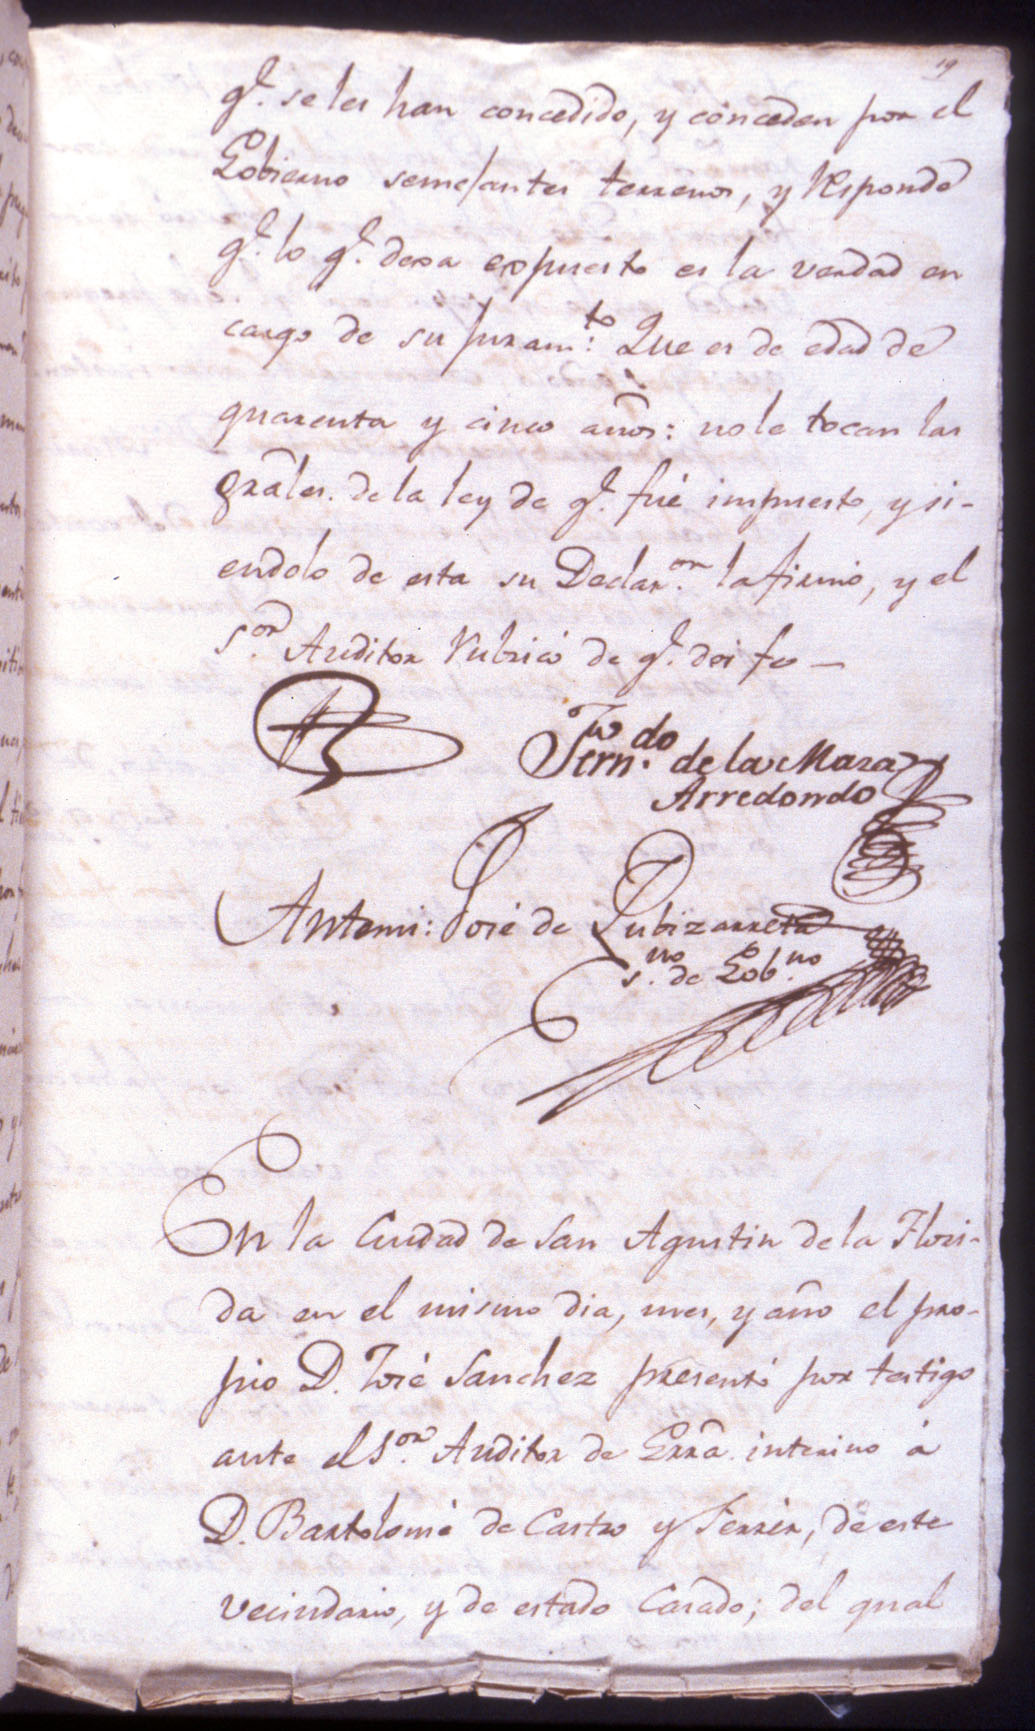 19
q.e se les han concedido, y conceden por el
Gobierno semejantes terrenos, y responde
q.e lo q.e dexa expuesto es la verdad en
cargo de su juram.to Que es de edad de
quarenta y cinco años: no le tocan las
grāles. de la ley de q.e fué impuesto, y si-
endolo de esta su Declar.on la firmó, y el
S.or Auditor rubricó de q.e doi fe—
Fern.do de la Maza
Arredondo
Antemi: José de Zubizarreta
s.no de Gob.no
En la Ciudad de San Agustin de la Flori-
da en el mismo dia, mes, y año el pro-
pio D. José Sanchez presentó por testigo
ante el S.or Auditor de Grrā. interino á
D. Bartolomé de Castro y Ferrer, de este
vecindario, y de estado Casado; del qual